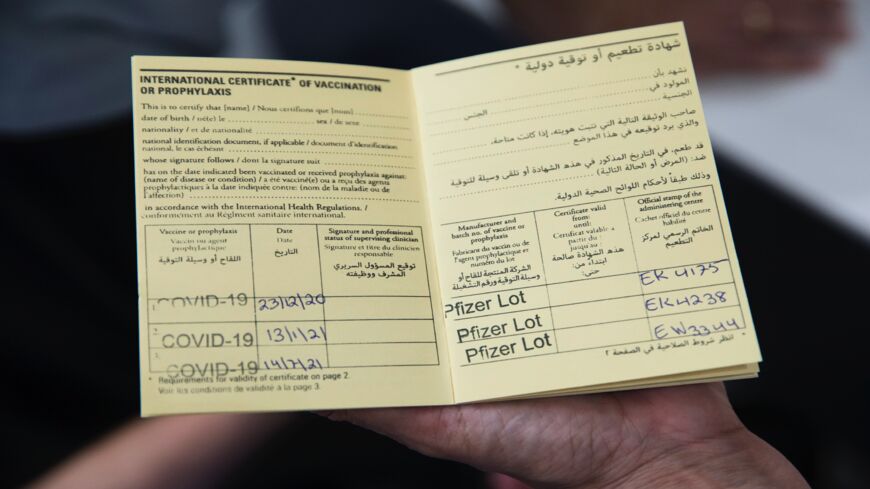 INTERNATIONAL CERTIFICATE* OF VACCINATION
OR PROPHYLAXIS
This is to certify that [name] / Nous certifions que [nom]
date of birth / né(e) le sex / de sexe
nationality / et de nationalité
national identification document, if applicable / document d'identification
national, le cas échéant
whose signature follows / dont la signature suit
has on the date indicated been vaccinated or received prophylaxis against:
(name of disease or condition) / a été vacciné(e) ou a reçu des agents
prophylactiques à la date indiquée contre: (nom de la maladie ou de
l'affection)
in accordance with the International Health Regulations. /
conformément au Règlement sanitaire international.
Vaccine or prophylaxis
Vaccin ou agent
prophylactique
اللقاح أو وسيلة التوقية
Date
Date
التاريخ
Signature and professional
status of supervising clinician
Signature et titre du clinicien
responsable
توقيع المسؤول السريري
المشرف ووظيفته
1. COVID-19 23/12/20
2. COVID-19 13/1/21
3. COVID-19 14/7/21
* Requirements for validity of certificate on page 2.
Voir les conditions de validité à la page 3.
شهادة تطعيم أو توقية دولية *
نشهد بأن
المولود في الجنس
الجنسية
صاحب الوثيقة التالية التي تثبت هويته، إذا كانت متاحة،
والذي يرد توقيعه في هذا الموضع
قد طعم، في التاريخ المذكور في هذه الشهادة أو تلقى وسيلة للتوقية
ضد: (المرض أو الحالة التالية)
وذلك طبقاً لأحكام اللوائح الصحية الدولية.
Manufacturer and
batch no. of vaccine or
prophylaxis
Fabricant du vaccin ou de
l'agent prophylactique et
numéro du lot
الشركة المنتجة للقاح أو
وسيلة التوقية ورقم التشغيلة
Certificate valid
from:
until:
Certificat valable à
partir du
jusqu'au
هذه الشهادة صالحة
ابتداءً من:
حتى:
Official stamp of the
administering centre
Cachet officiel du centre
habilité
الخاتم الرسمي لمركز
التطعيم
Pfizer Lot EK 4175
Pfizer Lot EK4238
Pfizer Lot EW3344
* انظر شروط الصلاحية في الصفحة ٢